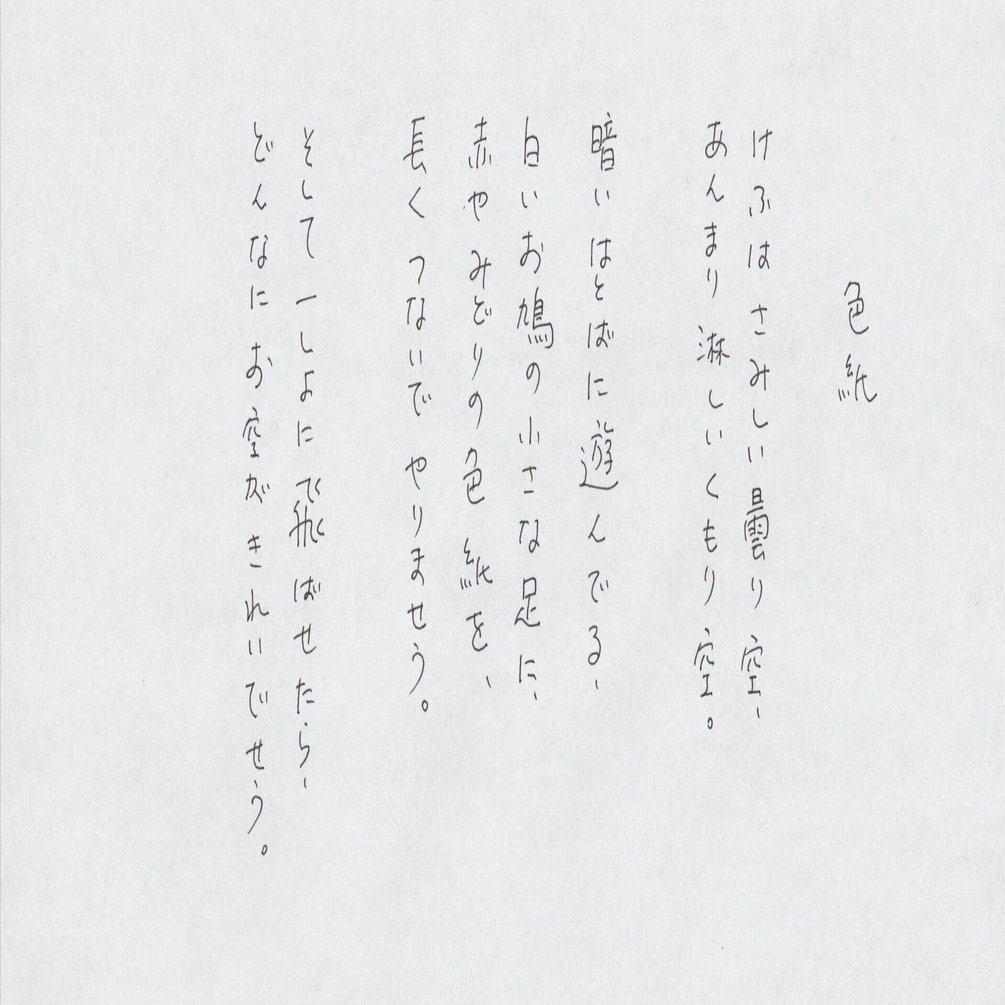 色紙
けふはさみしい曇り空、
あんまり淋しいくもり空。
暗いはとばに遊んでる、
白いお鳩の小さな足に、
赤やみどりの色紙を、
長くつないでやりませう。
そして一しよに飛ばせたら、
どんなにお空がきれいでせう。